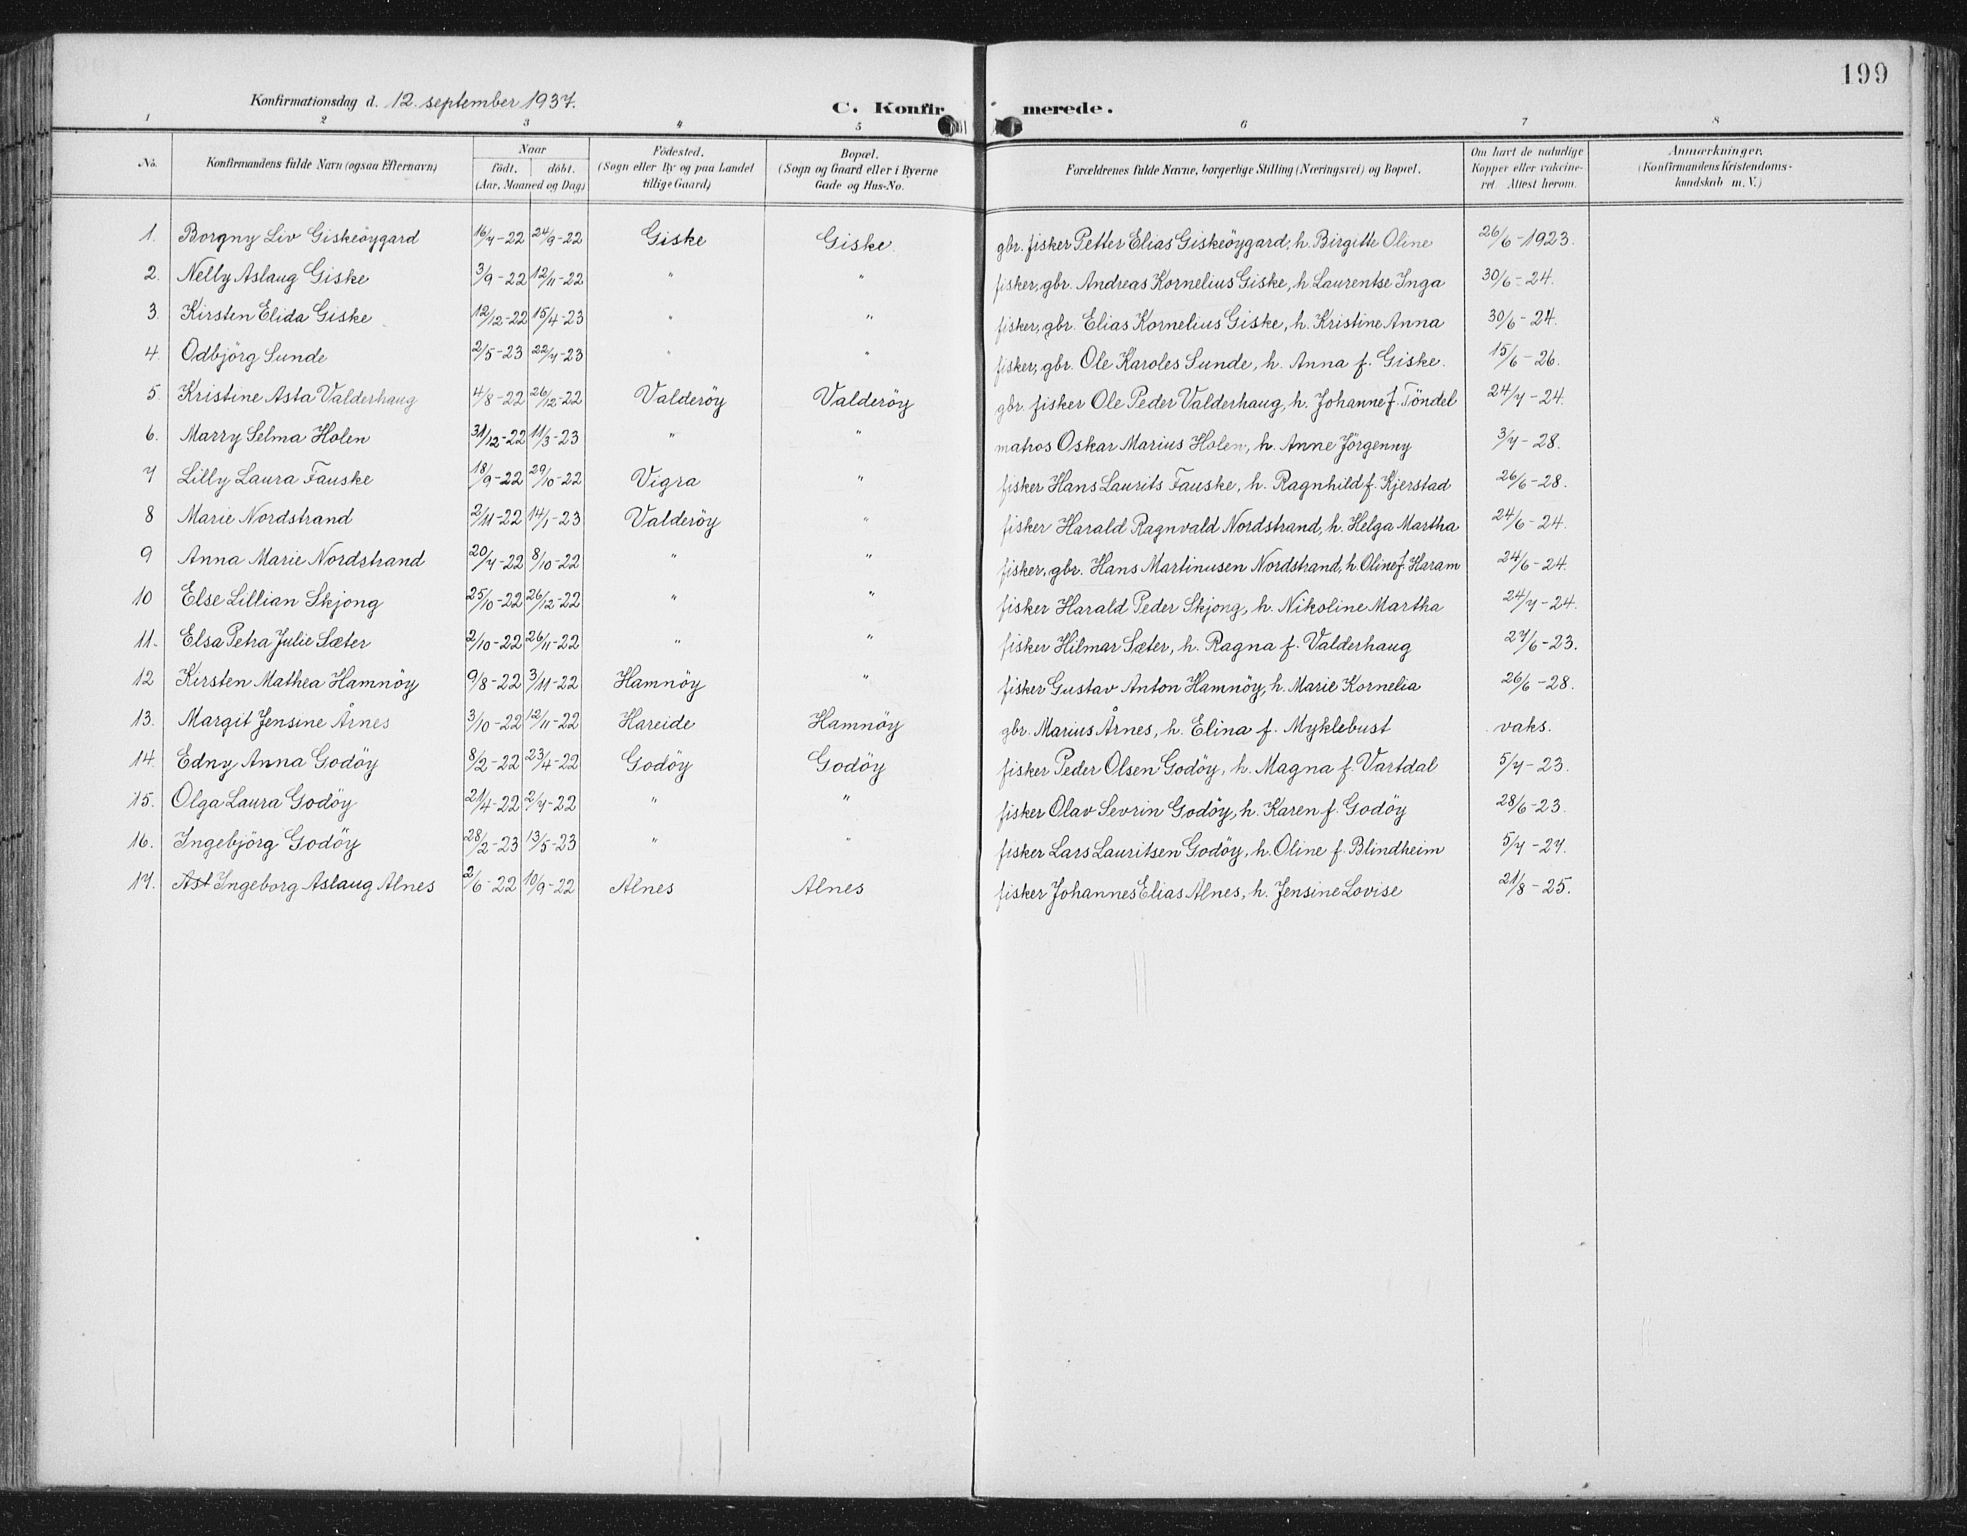 199
Konfirmationsdag d. 12. september 1937. C. Konfirmerede.
1 2 3 4 5 6 7 8
No. Konfirmandens fulde Navn (ogsaa Efternavn) Naar födt. döbt. (Aar, Maaned og Dag) Födested. (Sogn eller By og paa Landet tillige Gaard) Bopæl. (Sogn og Gaard eller i Byerne Gade og Hus-No. Forældrenes fulde Navne, borgerlige Stilling (Næringsvei) og Bopæl. Om havt de naturlige Kopper eller vakcineret. Attest herom. Anmærkninger. (Konfirmandens Kristendomskundskab m. V.)
1. Borgny Liv Giskeöygard 16/7-22 24/9-22 Giske Giske. gbr. fisker Petter Elias Giskeöygard, h. Birgitte Oline 26/6-1923.
2. Nelly Aslaug Giske 3/9-22 12/11-22 " " fisker, gbr. Andreas Kornelius Giske, h. Laurentse Inga 30/6-24.
3. Kirsten Elida Giske 12/12-22 15/4-23 " " fisker, gbr. Elias Kornelius Giske, h. Kristine Anna 30/6-24.
4. Odbjörg Sunde 2/5-23 22/7-23 " " fisker, gbr. Ole Karoles Sunde, h. Anna f. Giske. 15/6-26.
5 Kristine Asta Valderhaug 4/8-22 26/12-22 Valderöy Valderöy gbr. fisker Ole Peder Valderhaug, h. Johanne f. Töndel 24/7-24.
6. Marry Selma Holen 31/12-22 11/3-23 " " matros Oskar Marius Holen, h. Anne Jörgenny 3/7-28.
7 Lilly Laura Fauske 18/9-22 29/10-22 Vigra " fisker Hans Laurits Fauske, h. Ragnhild f. Kjerstad 26/6-28.
8 Marie Nordstrand 2/11-22 14/1-23 Valderöy " fisker Harald Ragnvald Nordstrand, h. Helga Martha 24/6-24.
9 Anna Marie Nordstrand 20/7-22 8/10-22 " " fisker, gbr. Hans Martinusen Nordstrand, h. Oline f. Haram 24/6-24.
10 Else Lillian Skjong 25/10-22 26/12-22 " " fisker Harald Peder Skjong, h. Nikoline Martha 24/7-24.
11. Elsa Petra Julie Sæter 2/10-22 26/11-22 " " fisker Hilmar Sæter, h. Ragna f. Valderhaug 27/6-23.
12 Kirsten Mathea Hamnöy 9/8-22 3/11-22 Hamnöy " fisker Gustav Anton Hamnöy, h. Marie Kornelia 26/6-28.
13. Margit Jensine Årnes 3/10-22 12/11-22 Hareide Hamnöy gbr. Marius Årnes, h. Elina f. Myklebust vaks.
14. Edny Anna Godöy 8/2-22 23/4-22 Godöy Godöy fisker Peder Olsen Godöy, h. Magna f. Vartdal 5/7-23.
15. Olga Laura Godöy 21/4-22 2/7-22 " " fisker Olav Sevrin Godöy, h. Karen f. Godöy 28/6-23.
16. Ingebjörg Godöy 28/2-23 13/5-23 " " fisker Lars Lauritsen Godöy, h. Oline f. Blindheim 5/7-27.
17. Ast Ingeborg Aslaug Alnes 2/6-22 10/9-22 Alnes Alnes fisker Johannes Elias Alnes, h. Jensine Lovise 21/8-25.